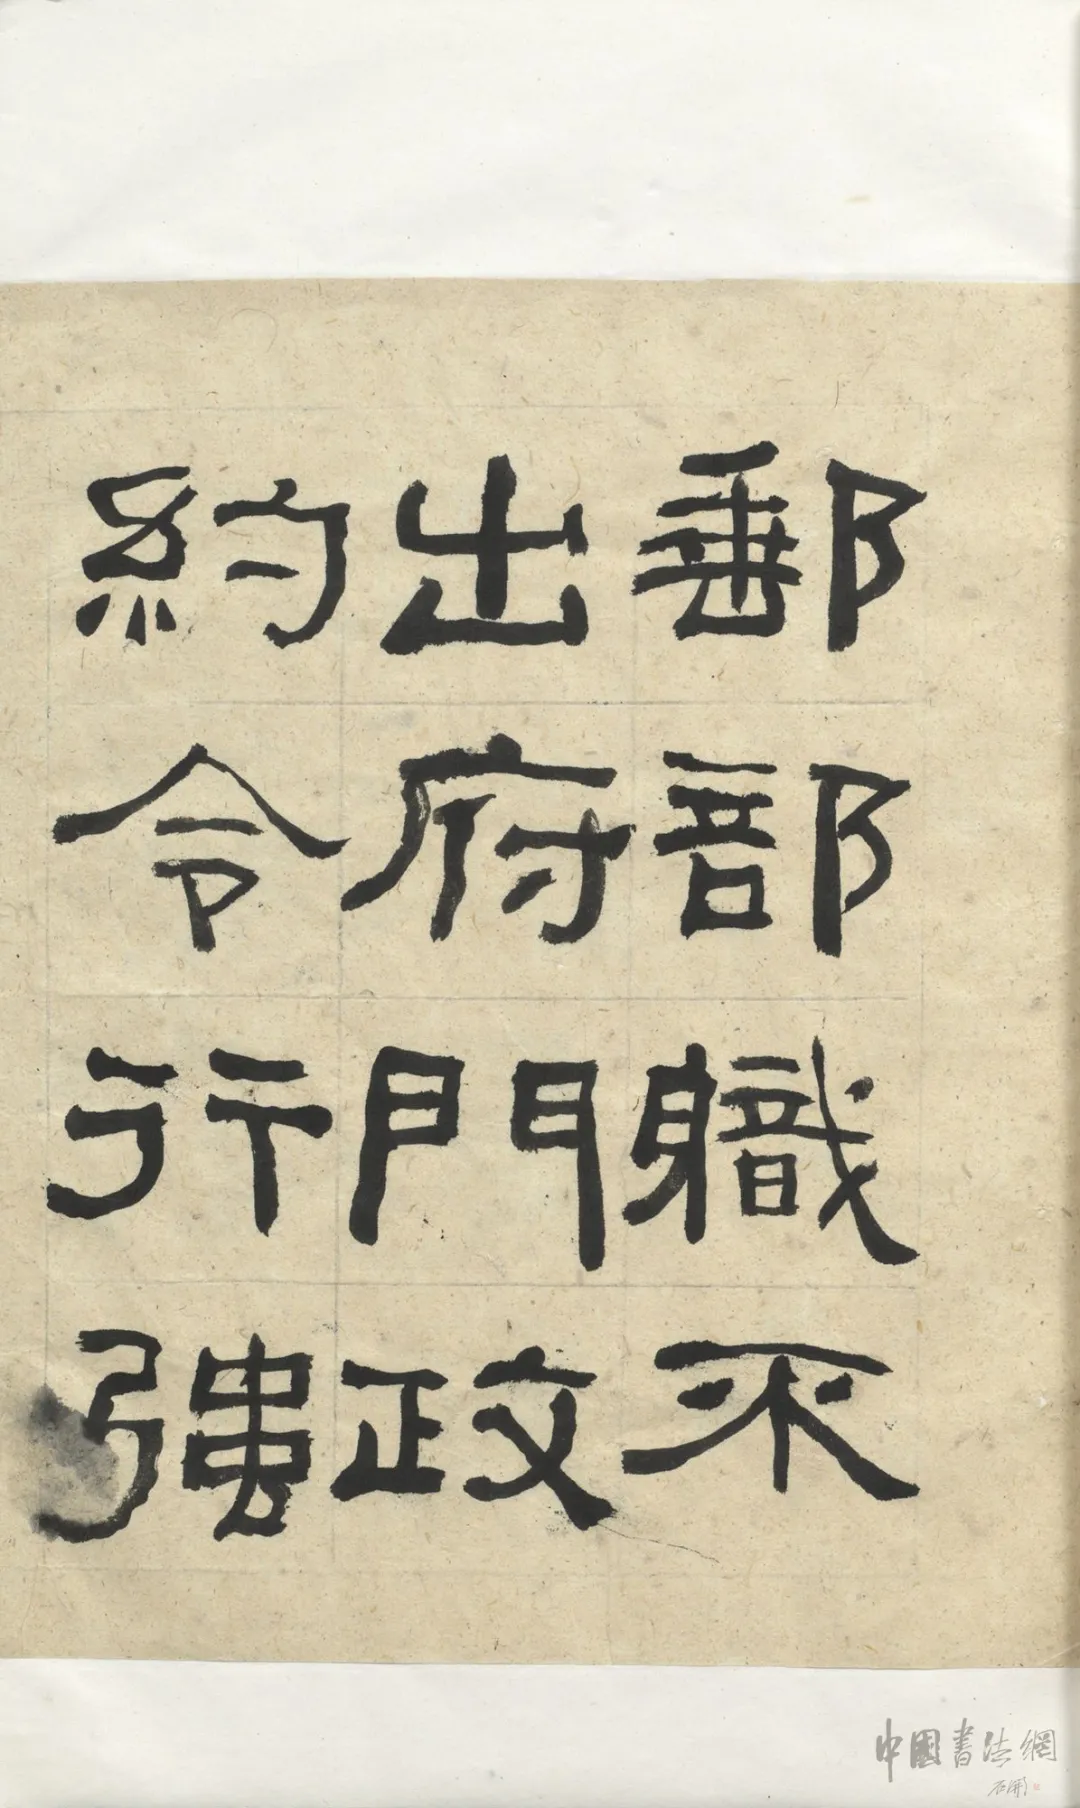 郵部職不
出府門政
約令行強
中國書法網